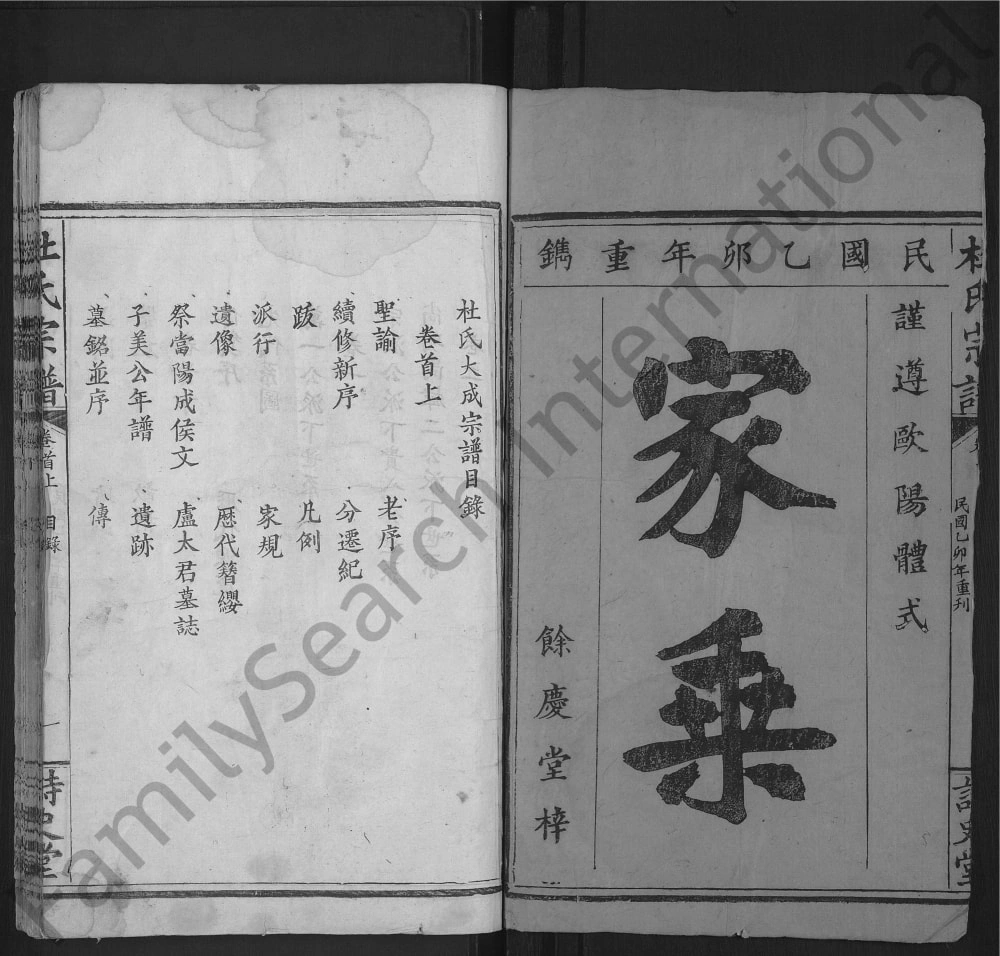 民國乙卯年重鐫
謹遵歐陽體式
家乘
餘慶堂梓
杜氏宗譜
民國乙卯年重刊
詩史堂
杜氏大成宗譜目錄
卷首上
聖諭 老序
續修新序 分遷紀
跋 凡例
派行 家規
遺像 歷代簪纓
祭當陽成侯文 盧太君墓誌
子美公年譜 遺跡
墓銘並序 傳
杜氏宗譜
卷首上 目錄
一
詩史堂
FamilySearch International